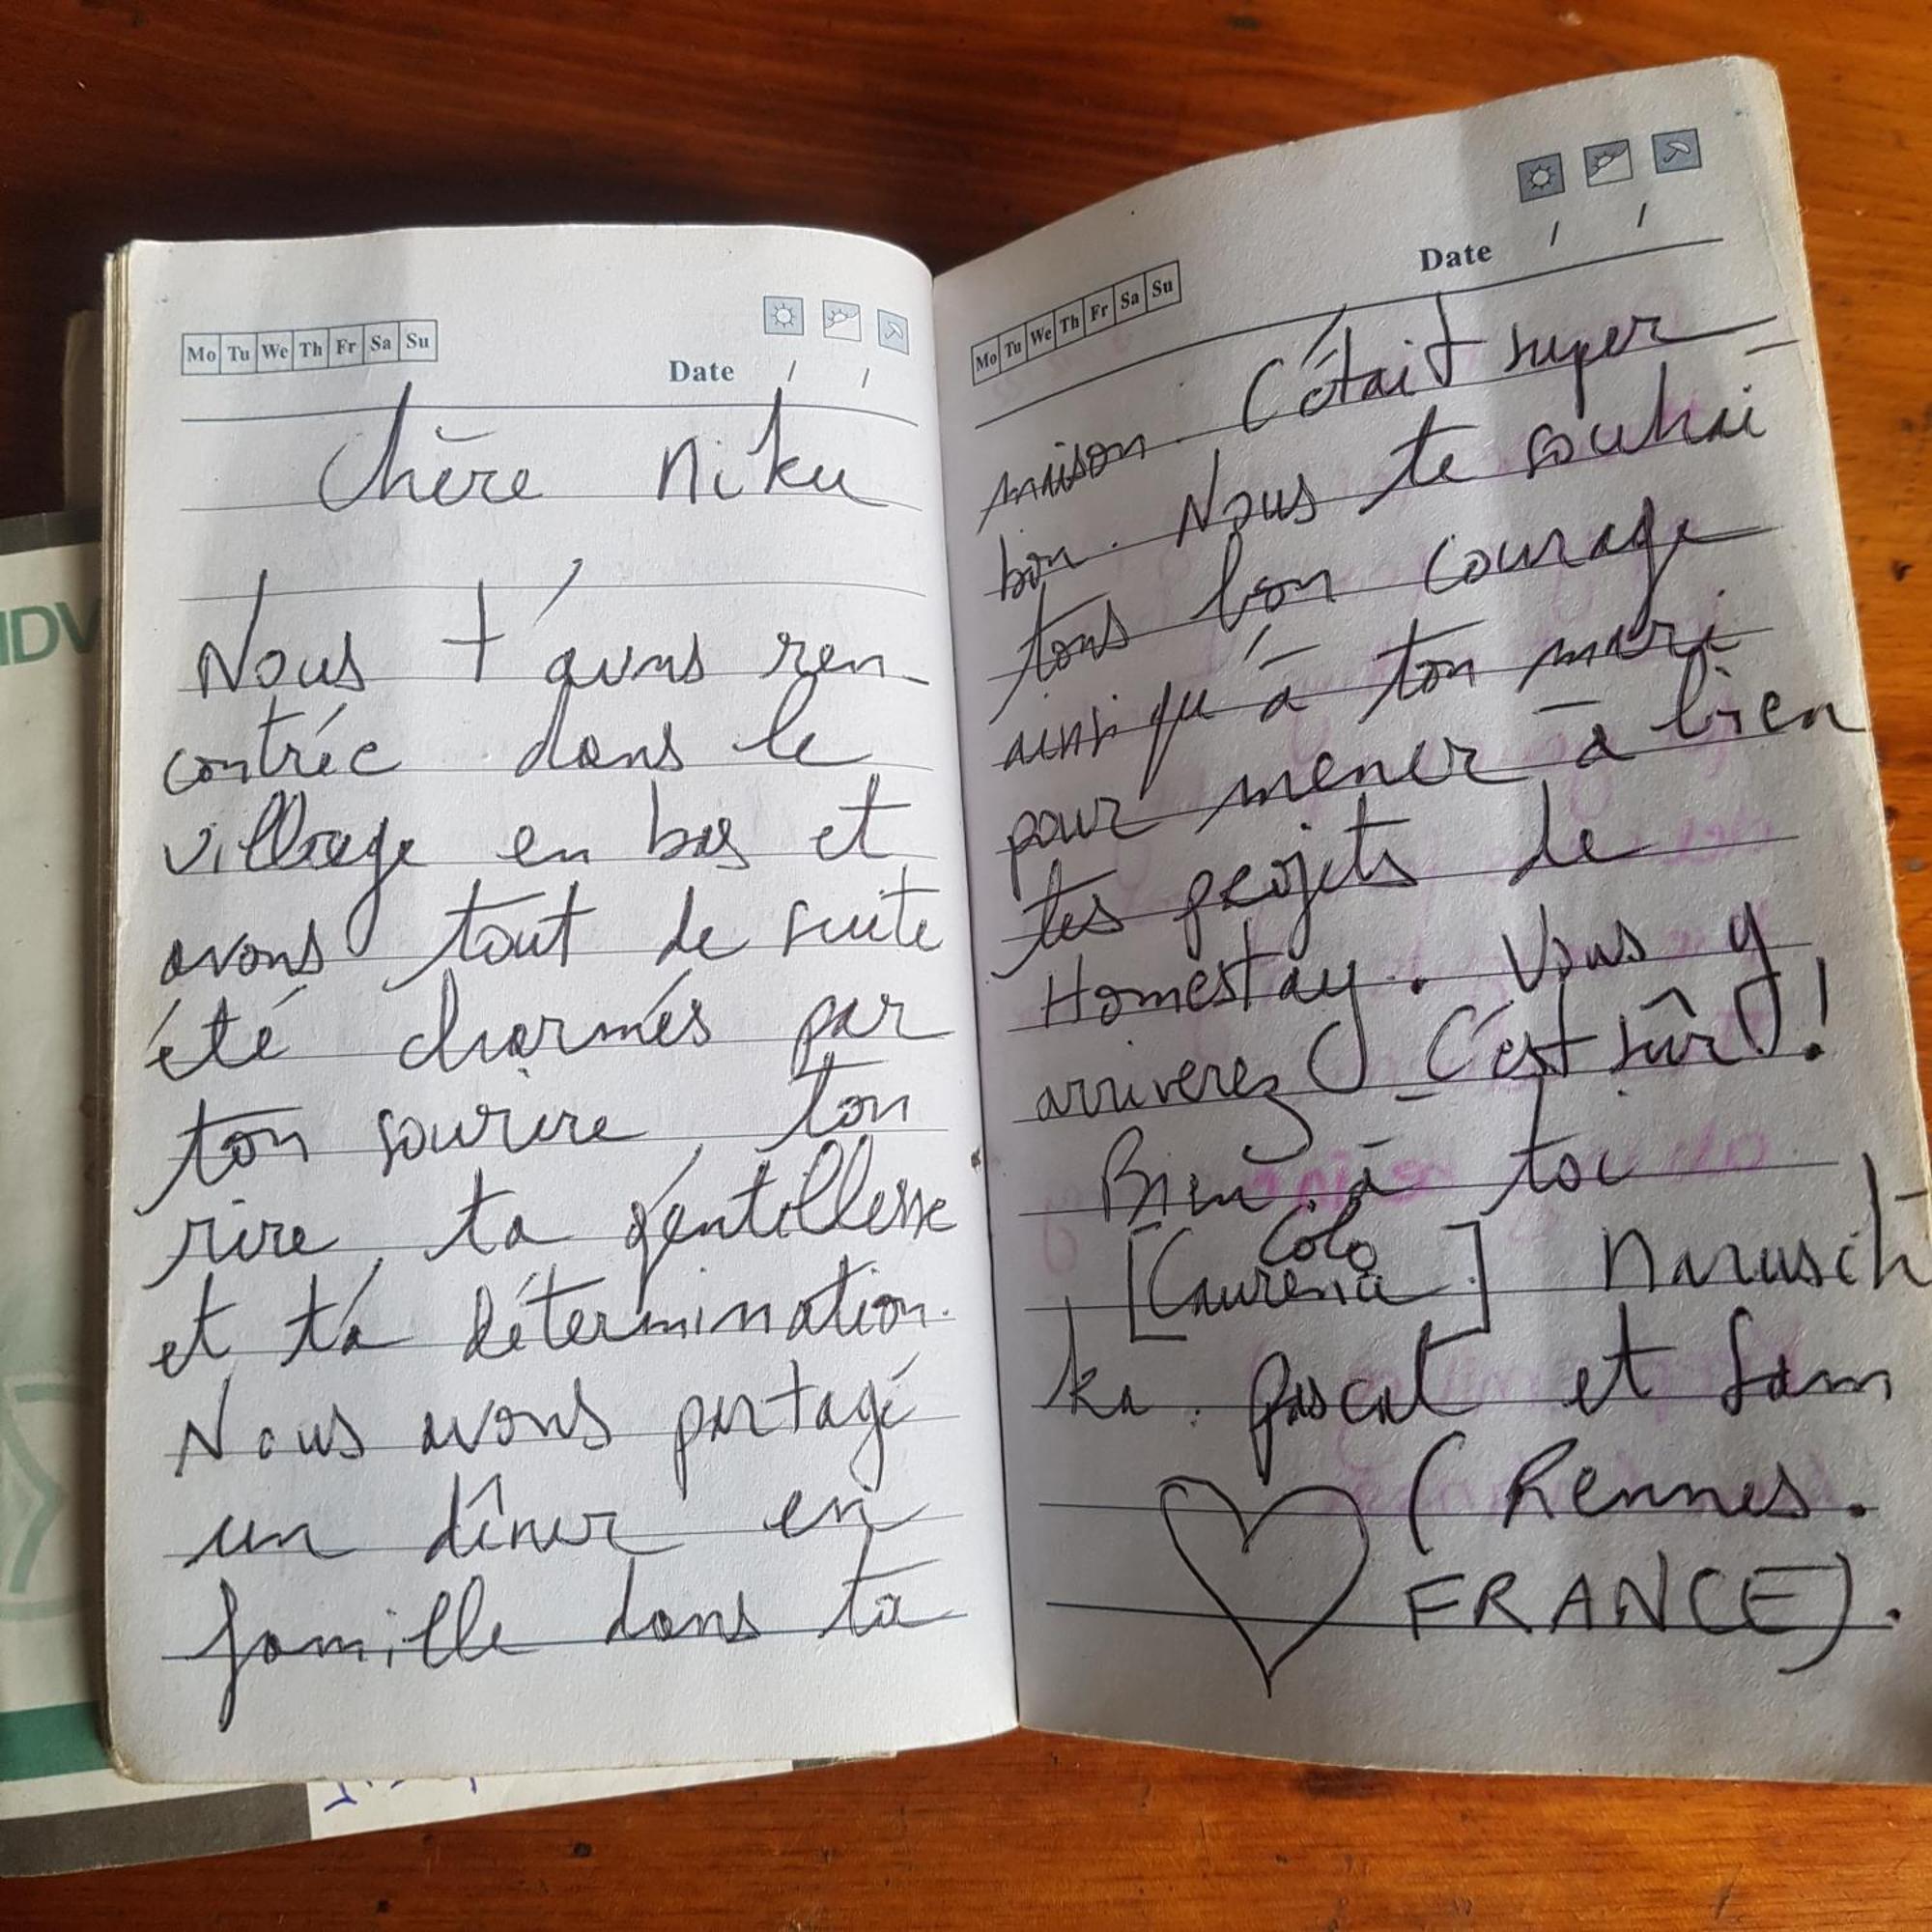 IDV
Mo Tu We Th Fr Sa Su
Date / /
Chère Niku
Nous t'avons ren-
contrée dans le
village en bas et
avons tout de suite
été charmés par
ton sourire, ton
rire, ta gentillesse
et ta détermination.
Nous avons partagé
un dîner en
famille dans ta
Mo Tu We Th Fr Sa Su
Date / /
maison. C'était super
bon. Nous te souhai-
tons bon courage
ainsi qu'à ton mari
pour mener à bien
tes projets de
Homestay. Vous y
arriverez. C'est sûr !
Bien à toi
Colo
[Laurence] Narusch-
ka. Pascal et Sam
(Rennes.
FRANCE).